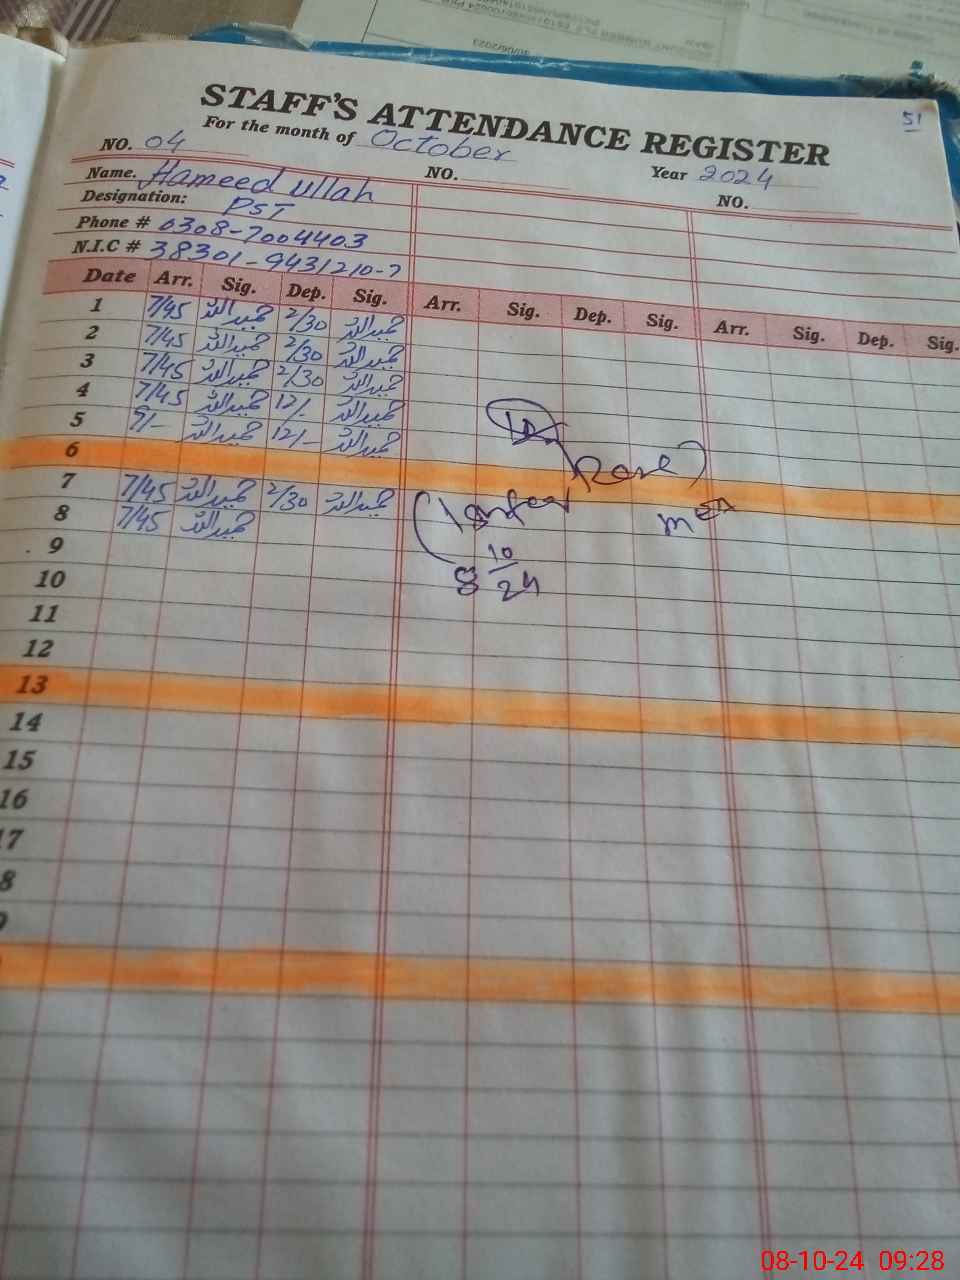 51
STAFF'S ATTENDANCE REGISTER
For the month of October
NO. 04 NO. Year 2024
Name. Hameed ullah NO.
Designation: PST
Phone # 0308-7004403
N.I.C # 38301-9431210-7
Date Arr. Sig. Dep. Sig. Arr. Sig. Dep. Sig. Arr. Sig. Dep. Sig.
1 7/45 حمیداللہ 2/30 حمیداللہ
2 7/45 حمیداللہ 2/30 حمیداللہ
3 7/45 حمیداللہ 2/30 حمیداللہ
4 7/45 حمیداللہ 12/- حمیداللہ
5 9/- حمیداللہ 12/- حمیداللہ
6
7 7/45 حمیداللہ 2/30 حمیداللہ
8 7/45 حمیداللہ
8 10/24
9
10
11
12
13
14
15
16
17
8
08-10-24 09:28